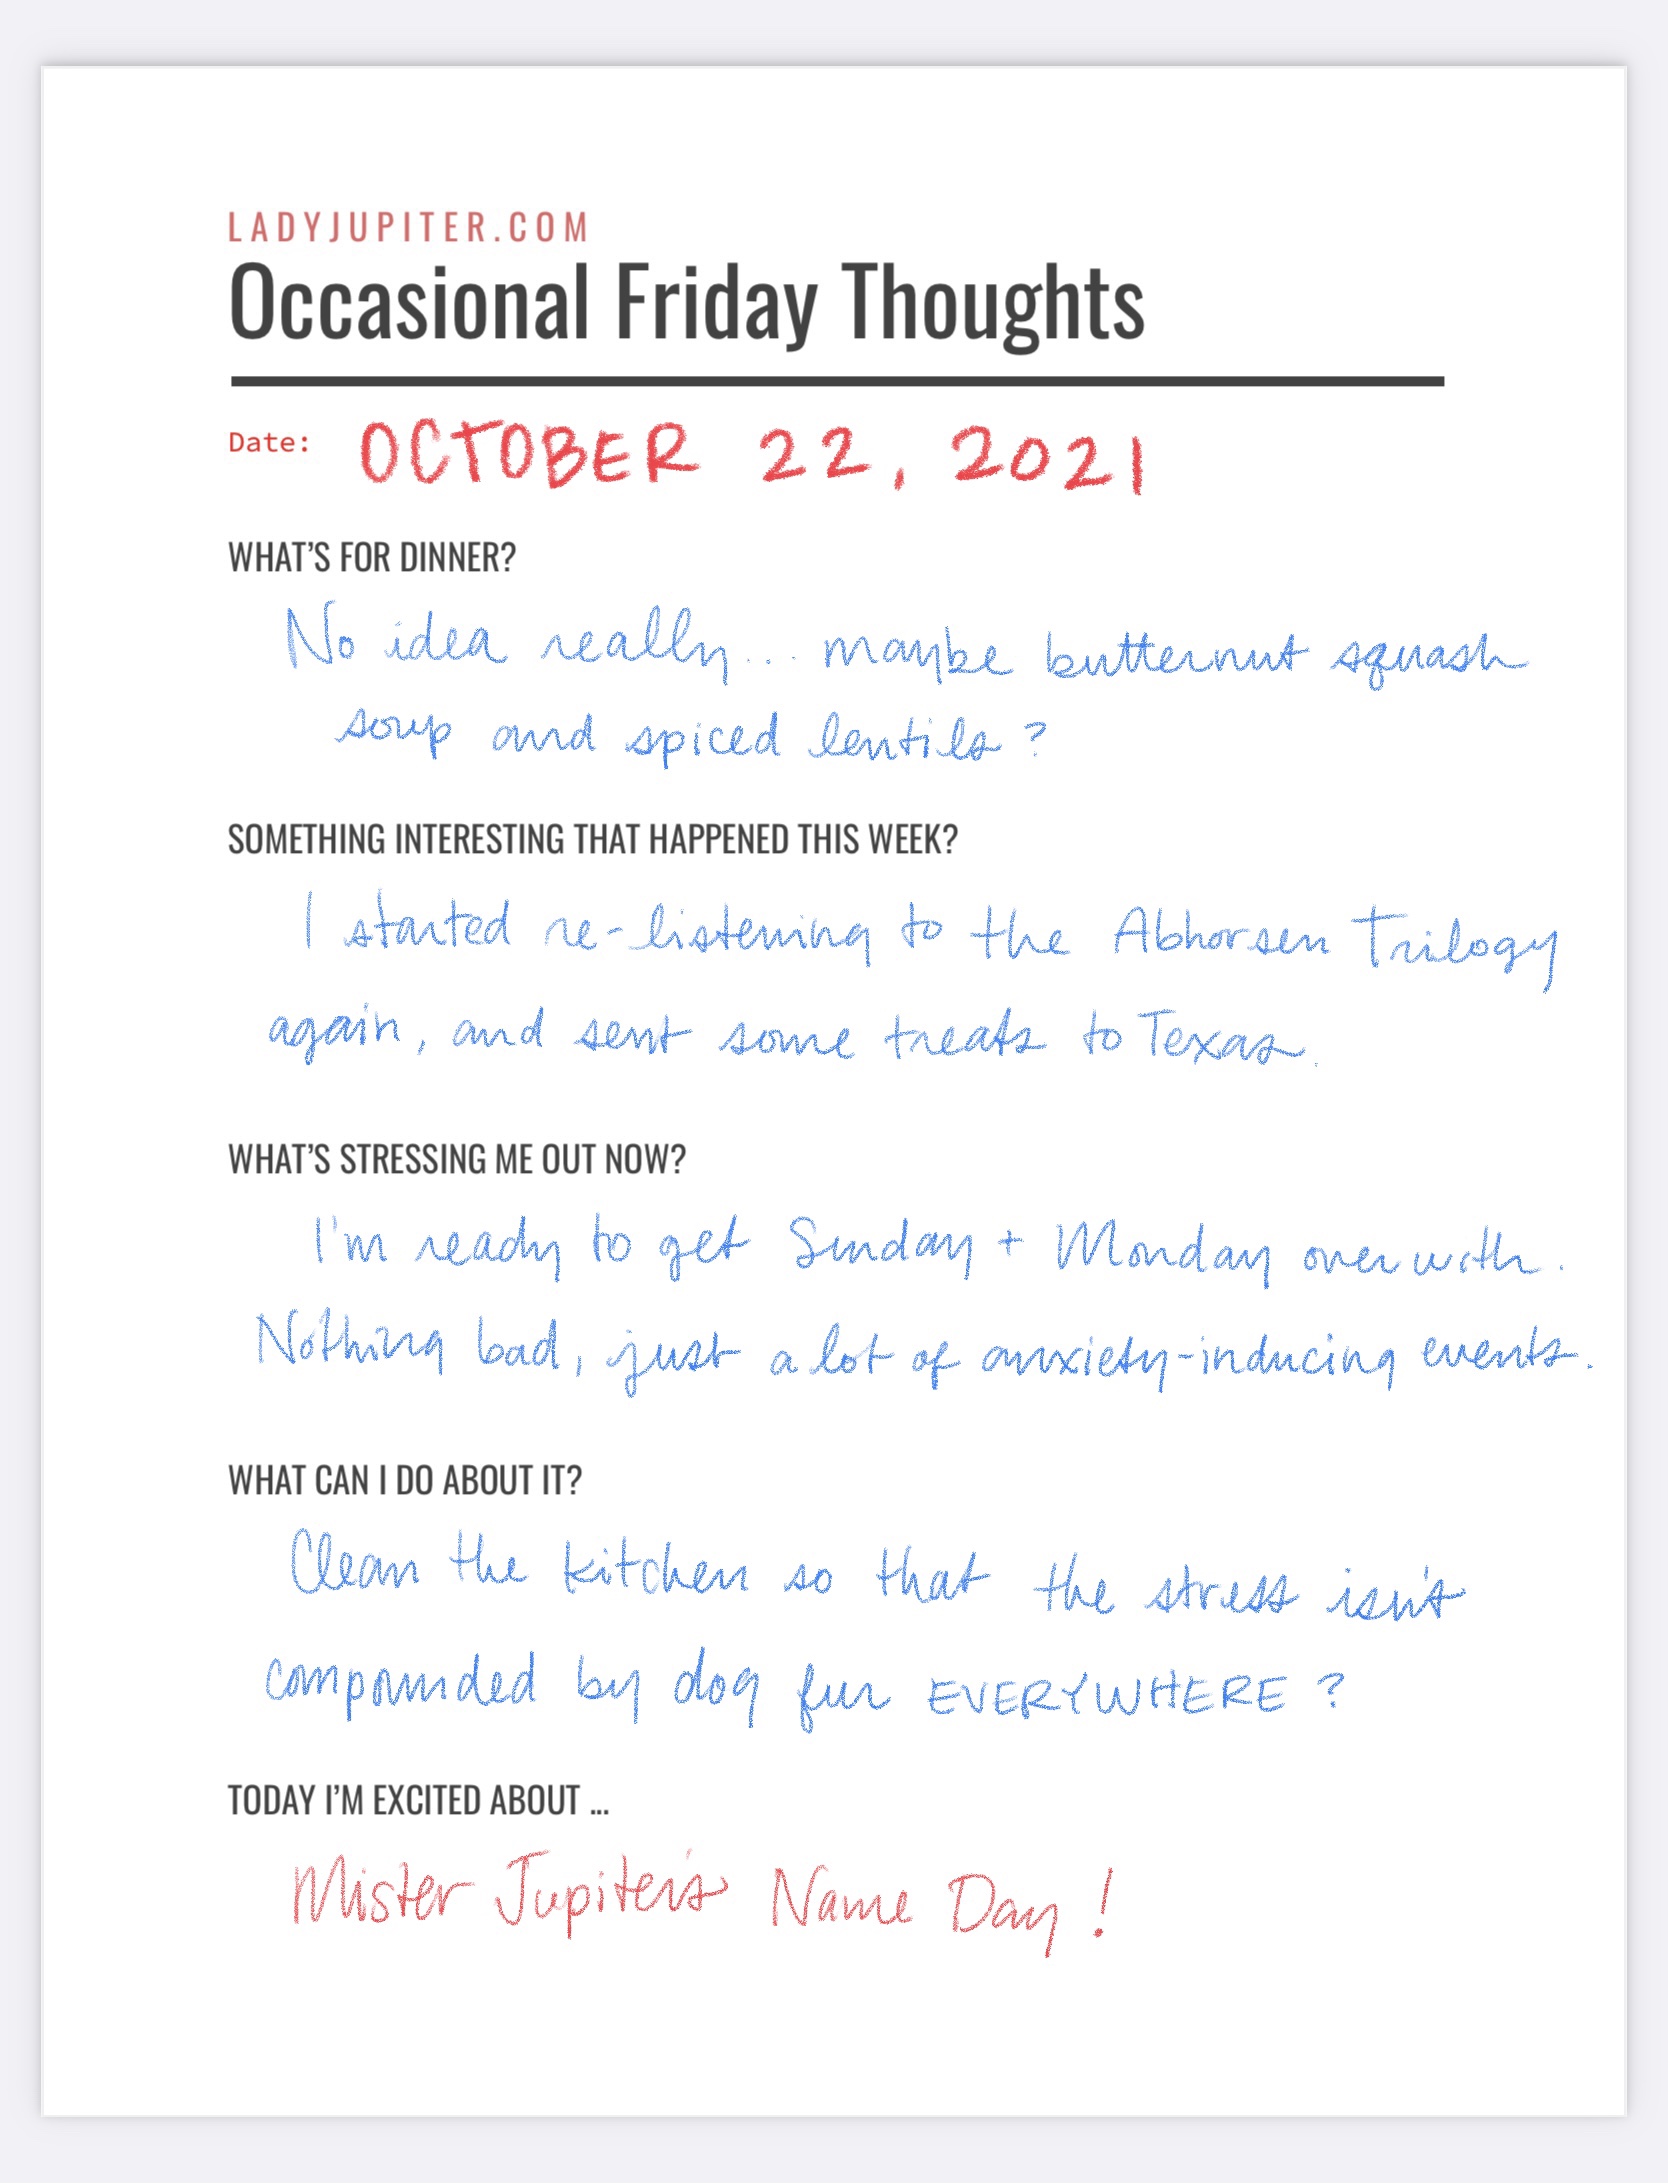 LADYJUPITER.COM
Occasional Friday Thoughts
Date: OCTOBER 22, 2021
WHAT'S FOR DINNER?
No idea really... maybe butternut squash
soup and spiced lentils?
SOMETHING INTERESTING THAT HAPPENED THIS WEEK?
I started re-listening to the Abhorsen Trilogy
again, and sent some treats to Texas.
WHAT'S STRESSING ME OUT NOW?
I'm ready to get Sunday + Monday over with.
Nothing bad, just a lot of anxiety-inducing events.
WHAT CAN I DO ABOUT IT?
Clean the kitchen so that the stress isn't
compounded by dog fur EVERYWHERE?
TODAY I'M EXCITED ABOUT ...
Mister Jupiter's Name Day!